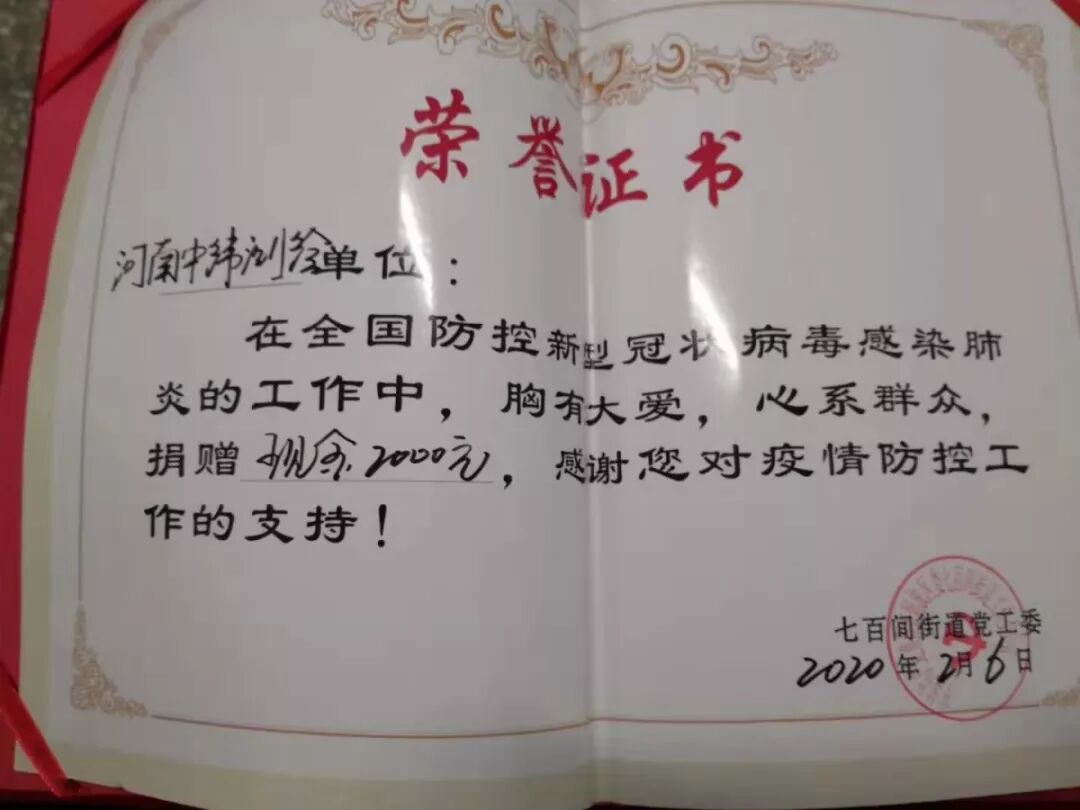 荣誉证书
河南中纬测绘单位：
在全国防控新型冠状病毒感染肺
炎的工作中，胸有大爱，心系群众，
捐赠现金2000元，感谢您对疫情防控工
作的支持！
七百间街道党工委
2020年2月6日